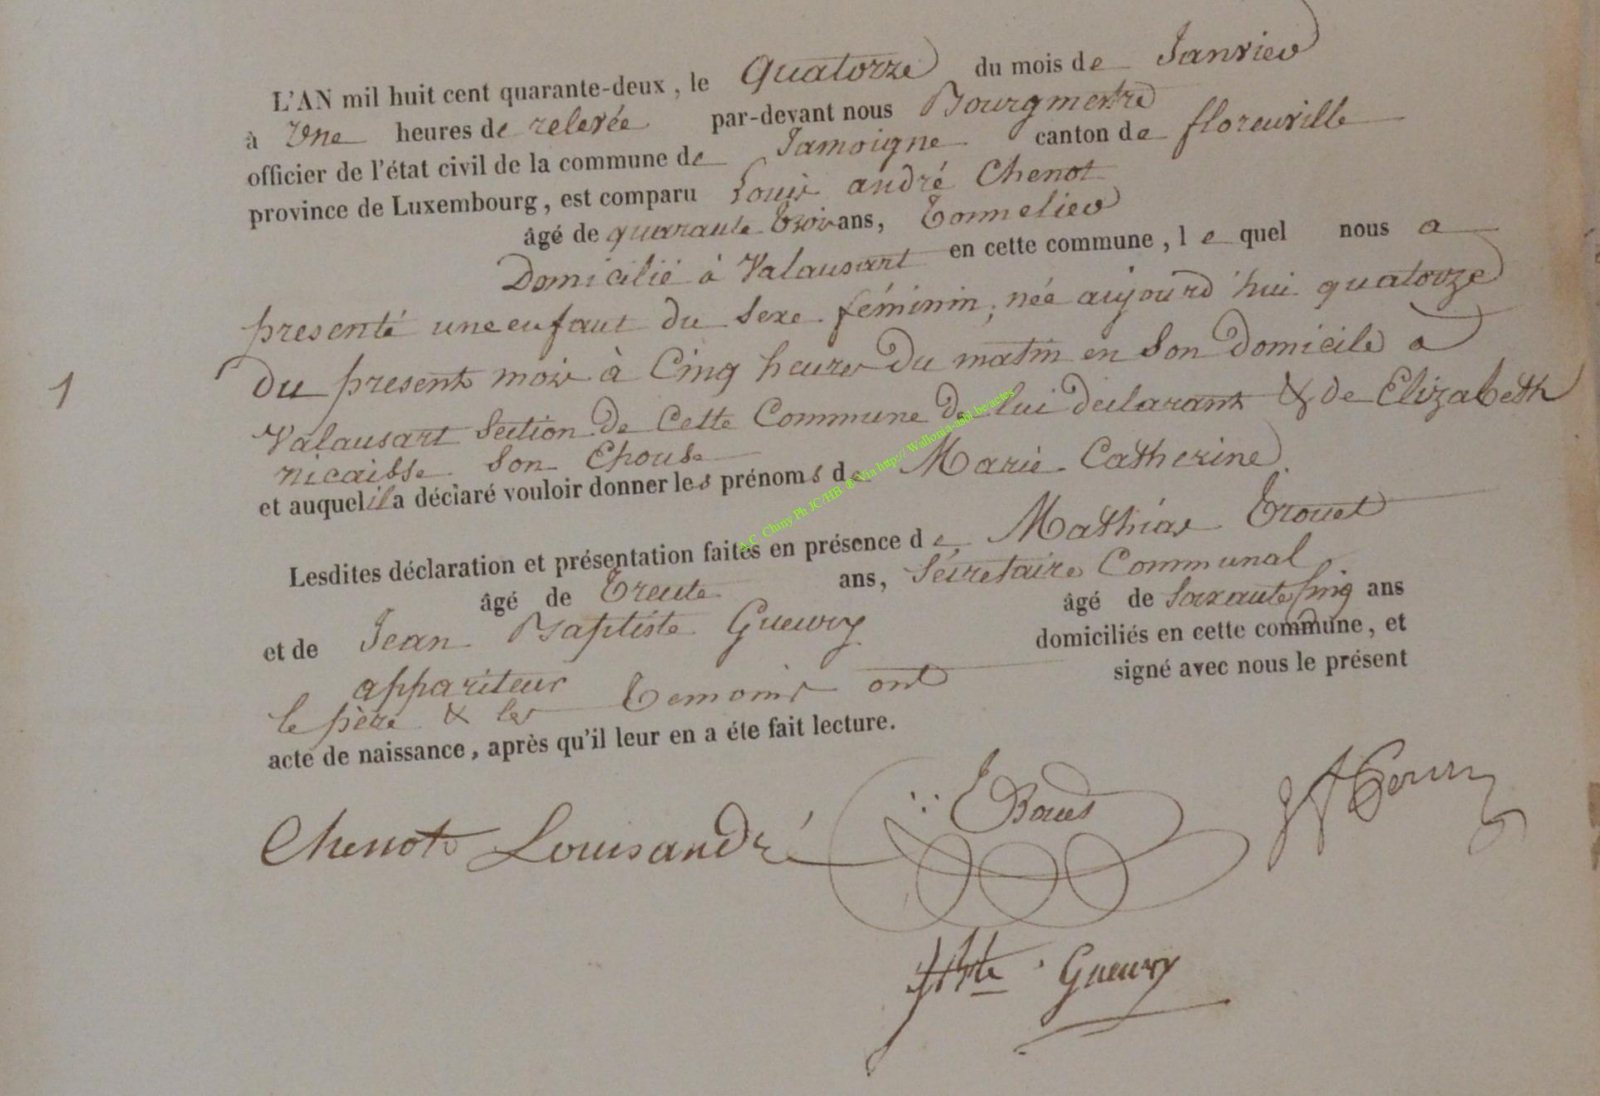 L'AN mil huit cent quarante-deux, le Quatorze du mois de Janvier
à Une heures de relevée par-devant nous Bourgmestre
officier de l'état civil de la commune de Jamoigne canton de florenville
province de Luxembourg, est comparu Louis andré Chenot
âgé de quarante trois ans, Tonnelier
Domicilié à Valansart en cette commune, le quel nous a
presenté une enfant du sexe féminin, née aujourd'hui quatorze
du present mois à Cinq heures du matin en Son domicile a
Valansart Section de Cette Commune de lui declarant & de Elizabeth
nicaisse Son Epouse
et auquel il a déclaré vouloir donner les prénoms de Marie Catherine
Lesdites déclaration et présentation faites en présence de Mathias Trouet
âgé de Trente ans, Sécretaire Communal
et de Jean Baptiste Gueury âgé de Soixante Cinq ans
appariteur domiciliés en cette commune, et
le père & les Temoins ont signé avec nous le présent
acte de naissance, après qu'il leur en a éte fait lecture.
1
A.C. Chiny Ph JC/HB & Via http://Wallonia-asbl.be/actes
Chenot Louis andré
Gueury